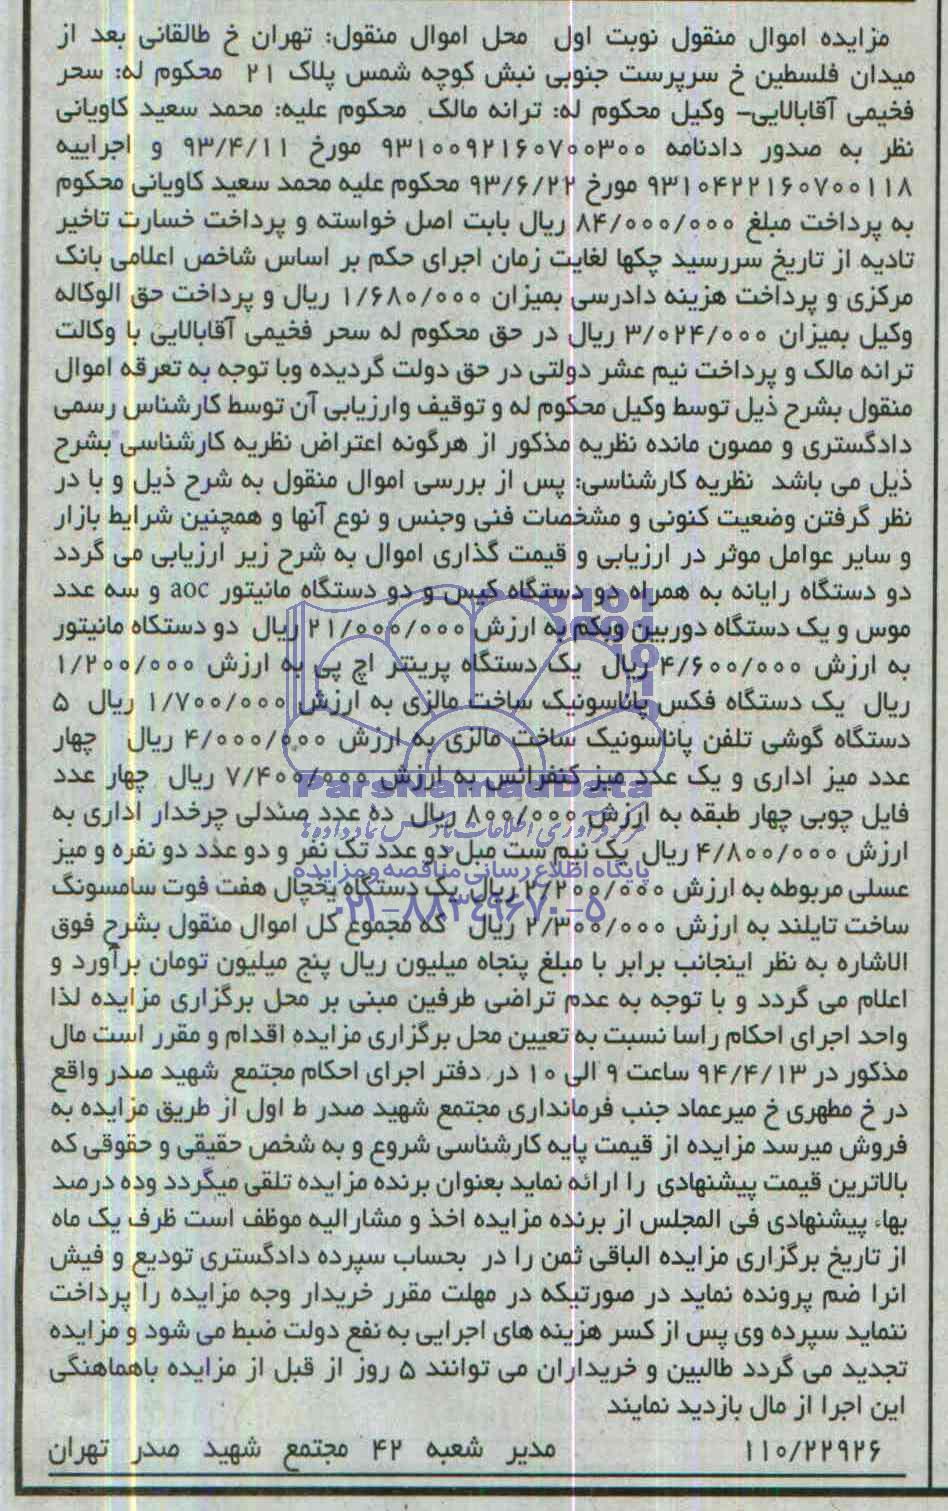 مزایده اموال منقول نوبت اول محل اموال منقول: تهران خ طالقانی بعد از
میدان فلسطین خ سرپرست جنوبی نبش کوچه شمس پلاک ۲۱ محکوم له: سحر
فخیمی آقابالایی- وکیل محکوم له: ترانه مالک محکوم علیه: محمد سعید کاویانی
نظر به صدور دادنامه ۹۳۱۰۰۹۲۱۶۰۷۰۰۳۰۰ مورخ ۹۳/۴/۱۱ و اجراییه
۹۳۱۰۴۲۲۱۶۰۷۰۰۱۱۸ مورخ ۹۳/۶/۲۲ محکوم علیه محمد سعید کاویانی محکوم
به پرداخت مبلغ ۸۴/۰۰۰/۰۰۰ ریال بابت اصل خواسته و پرداخت خسارت تاخیر
تادیه از تاریخ سررسید چکها لغایت زمان اجرای حکم بر اساس شاخص اعلامی بانک
مرکزی و پرداخت هزینه دادرسی بمیزان ۱/۶۸۰/۰۰۰ ریال و پرداخت حق الوکاله
وکیل بمیزان ۳/۰۲۴/۰۰۰ ریال در حق محکوم له سحر فخیمی آقابالایی با وکالت
ترانه مالک و پرداخت نیم عشر دولتی در حق دولت گردیده وبا توجه به تعرقه اموال
منقول بشرح ذیل توسط وکیل محکوم له و توقیف وارزیابی آن توسط کارشناس رسمی
دادگستری و مصون مانده نظریه مذکور از هرگونه اعتراض نظریه کارشناسی بشرح
ذیل می باشد نظریه کارشناسی: پس از بررسی اموال منقول به شرح ذیل و با در
نظر گرفتن وضعیت کنونی و مشخصات فنی وجنس و نوع آنها و همچنین شرایط بازار
و سایر عوامل موثر در ارزیابی و قیمت گذاری اموال به شرح زیر ارزیابی می گردد
دو دستگاه رایانه به همراه دو دستگاه کیس و دو دستگاه مانیتور aoc و سه عدد
موس و یک دستگاه دوربین وبکم به ارزش ۲۱/۰۰۰/۰۰۰ ریال دو دستگاه مانیتور
به ارزش ۴/۶۰۰/۰۰۰ ریال یک دستگاه پرینتر اچ پی به ارزش ۱/۲۰۰/۰۰۰
ریال یک دستگاه فکس پاناسونیک ساخت مالزی به ارزش ۱/۷۰۰/۰۰۰ ریال ۵
دستگاه گوشی تلفن پاناسونیک ساخت مالزی به ارزش ۴/۰۰۰/۰۰۰ ریال چهار
عدد میز اداری و یک عدد میز کنفرانس به ارزش ۷/۴۰۰/۰۰۰ ریال چهار عدد
ParsNamadData
فایل چوبی چهار طبقه به ارزش ۸۰۰/۰۰۰ ریال ده عدد صندلی چرخدار اداری به
ارزش ۴/۸۰۰/۰۰۰ ریال یک نیم ست مبل دو عدد تک نفر و دو عدد دو نفره و میز
پایگاه اطلاع رسانی مناقصه و مزایده
عسلی مربوطه به ارزش ۲/۲۰۰/۰۰۰ ریال یک دستگاه یخچال هفت فوت سامسونگ
۰۲۱-۸۸۳۴۹۶۷۰-۵
ساخت تایلند به ارزش ۲/۳۰۰/۰۰۰ ریال که مجموع کل اموال منقول بشرح فوق
الاشاره به نظر اینجانب برابر با مبلغ پنجاه میلیون ریال پنج میلیون تومان برآورد و
اعلام می گردد و با توجه به عدم تراضی طرفین مبنی بر محل برگزاری مزایده لذا
واحد اجرای احکام راسا نسبت به تعیین محل برگزاری مزایده اقدام و مقرر است مال
مذکور در ۹۴/۴/۱۳ ساعت ۹ الی ۱۰ در دفتر اجرای احکام مجتمع شهید صدر واقع
در خ مطهری خ میرعماد جنب فرمانداری مجتمع شهید صدر ط اول از طریق مزایده به
فروش میرسد مزایده از قیمت پایه کارشناسی شروع و به شخص حقیقی و حقوقی که
بالاترین قیمت پیشنهادی را ارائه نماید بعنوان برنده مزایده تلقی میگردد وده درصد
بهاء پیشنهادی فی المجلس از برنده مزایده اخذ و مشارالیه موظف است ظرف یک ماه
از تاریخ برگزاری مزایده الباقی ثمن را در بحساب سپرده دادگستری تودیع و فیش
انرا ضم پرونده نماید در صورتیکه در مهلت مقرر خریدار وجه مزایده را پرداخت
ننماید سپرده وی پس از کسر هزینه های اجرایی به نفع دولت ضبط می شود و مزایده
تجدید می گردد طالبین و خریداران می توانند ۵ روز از قبل از مزایده باهماهنگی
این اجرا از مال بازدید نمایند
۱۱۰/۲۲۹۲۶ مدیر شعبه ۴۲ مجتمع شهید صدر تهران